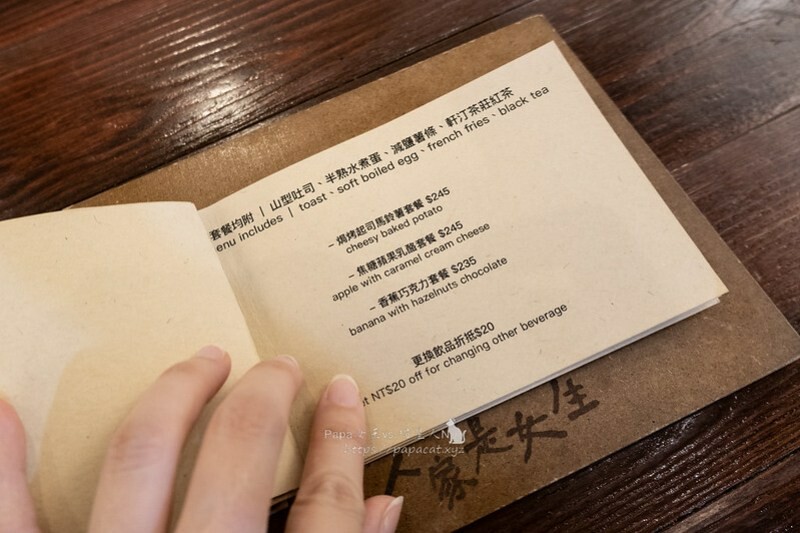 套餐均附 | 山型吐司、半熟水煮蛋、減鹽薯條、軒汀茶莊紅茶
enu includes | toast、soft boiled egg、french fries、black tea
– 焗烤起司馬鈴薯套餐 $245
cheesy baked potato
– 焦糖蘋果乳酪套餐 $245
apple with caramel cream cheese
– 香蕉巧克力套餐 $235
banana with hazelnuts chocolate
更換飲品折抵$20
t NT$20 off for changing other beverage
Papa
https://papacat.xyz
是女生